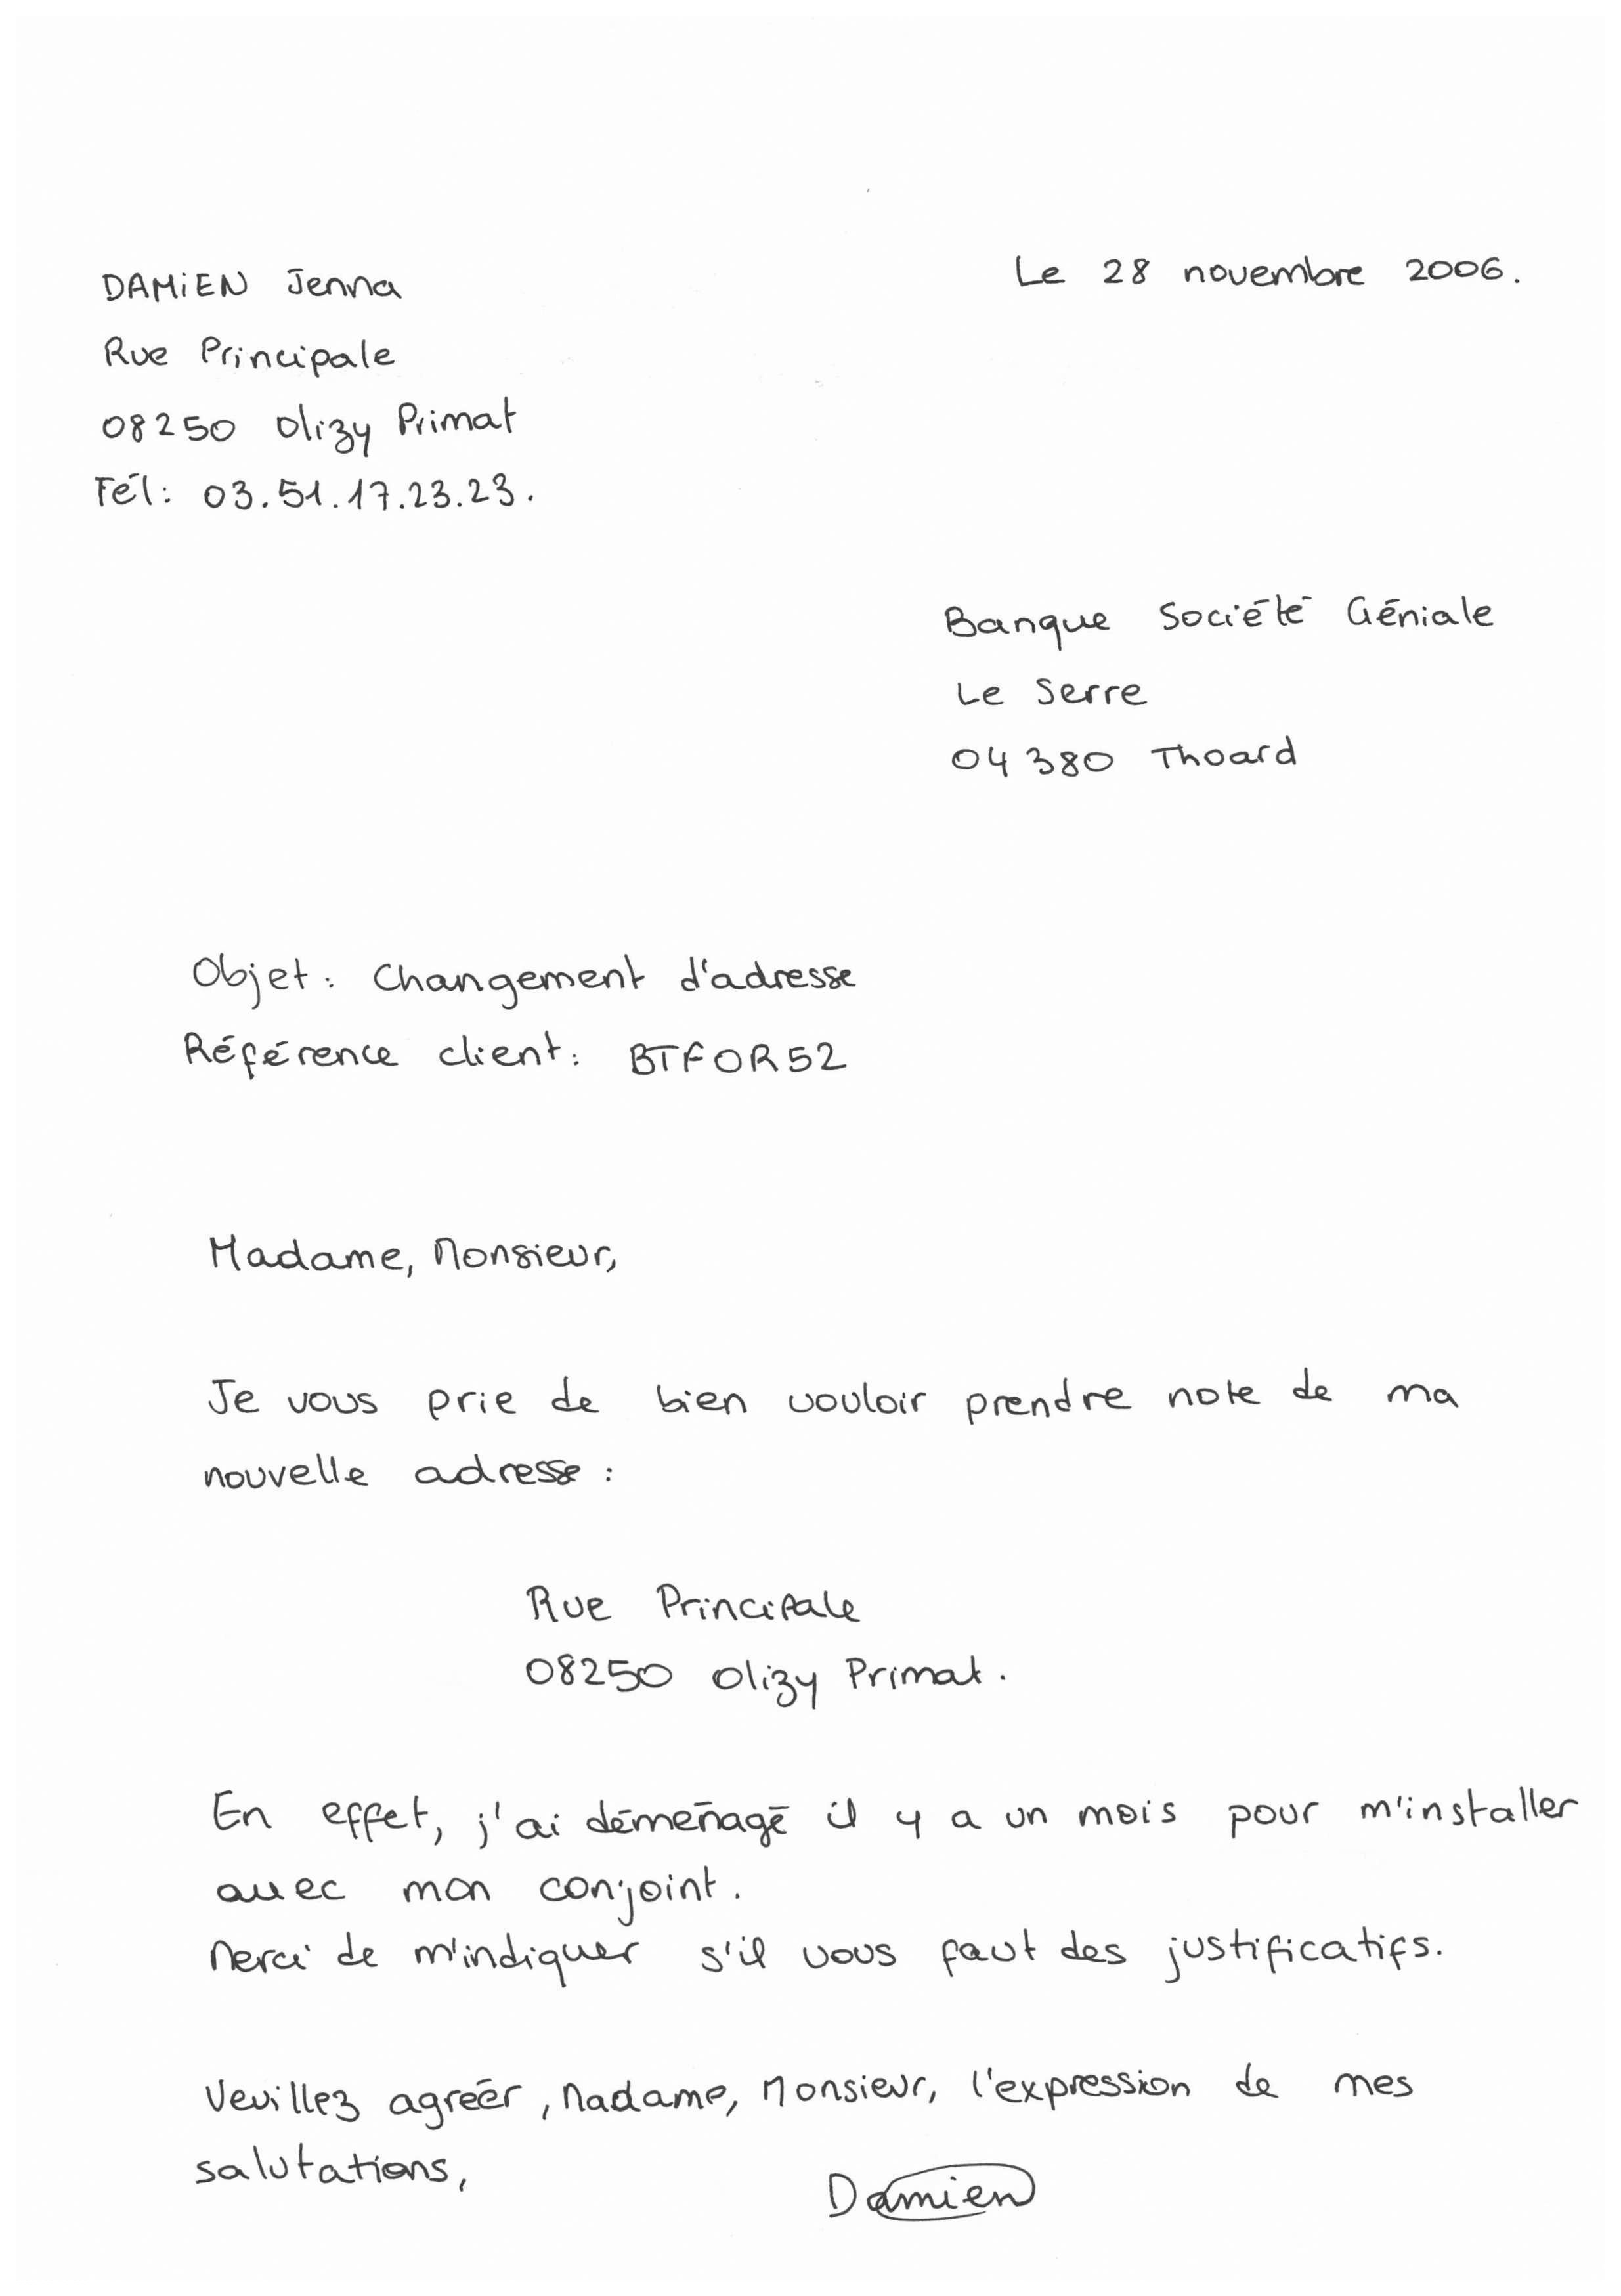 DAMIEN Jenna
Le 28 novembre 2006.
Rue Principale
08250 Olizy Primat
Tél: 03.51.17.23.23.
Banque Société Géniale
Le Serre
04380 Thoard
Objet: Changement d'adresse
Référence client: BTFOR52
Madame, Monsieur,
Je vous prie de bien vouloir prendre note de ma
nouvelle adresse :
Rue Principale
08250 Olizy Primat.
En effet, j'ai déménagé il y a un mois pour m'installer
avec mon conjoint.
Merci de m'indiquer s'il vous faut des justificatifs.
Veuillez agréer, Madame, Monsieur, l'expression de mes
salutations,
Damien